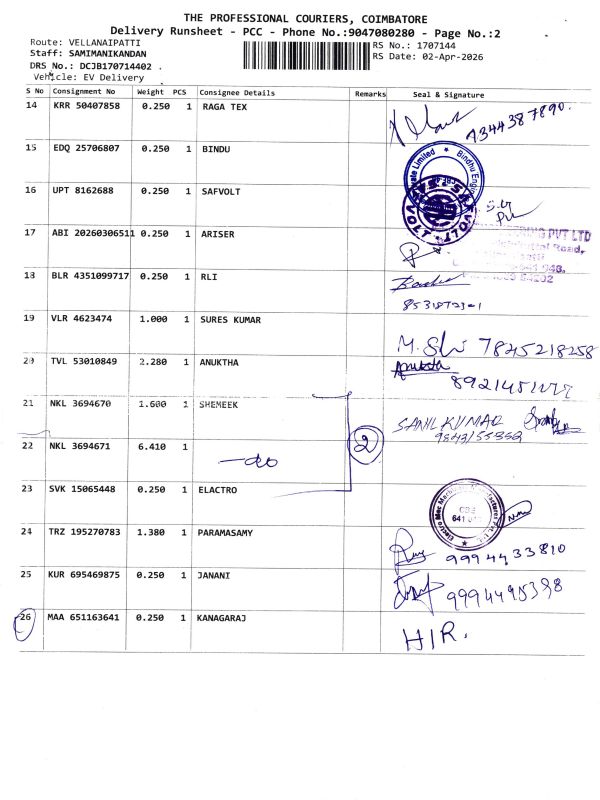 THE PROFESSIONAL COURIERS, COIMBATORE
Delivery Runsheet - PCC - Phone No.:9047080280 - Page No.:2
Route: VELLANAIPATTI
Staff: SAMIMANIKANDAN
DRS No.: DCJB170714402
Vehicle: EV Delivery
RS No.: 1707144
RS Date: 02-Apr-2026
S No Consignment No Weight PCS Consignee Details Remarks Seal & Signature
14 KRR 50407858 0.250 1 RAGA TEX 9344387890.
15 EDQ 25706807 0.250 1 BINDU
16 UPT 8162688 0.250 1 SAFVOLT
17 ABI 20260306511 0.250 1 ARISER
PVT LTD
Road,
18 BLR 4351099717 0.250 1 RLI
19 VLR 4623474 1.000 1 SURES KUMAR
7845218258
20 TVL 53010849 2.280 1 ANUKTHA Anuktha
21 NKL 3694670 1.600 1 SHEMEEK SANIL KUMAR
22 NKL 3694671 6.410 1 -do 2
23 SVK 15065448 0.250 1 ELACTRO
24 TRZ 195270783 1.380 1 PARAMASAMY 9994433810
25 KUR 695469875 0.250 1 JANANI 9994495398
26 MAA 651163641 0.250 1 KANAGARAJ H/R.